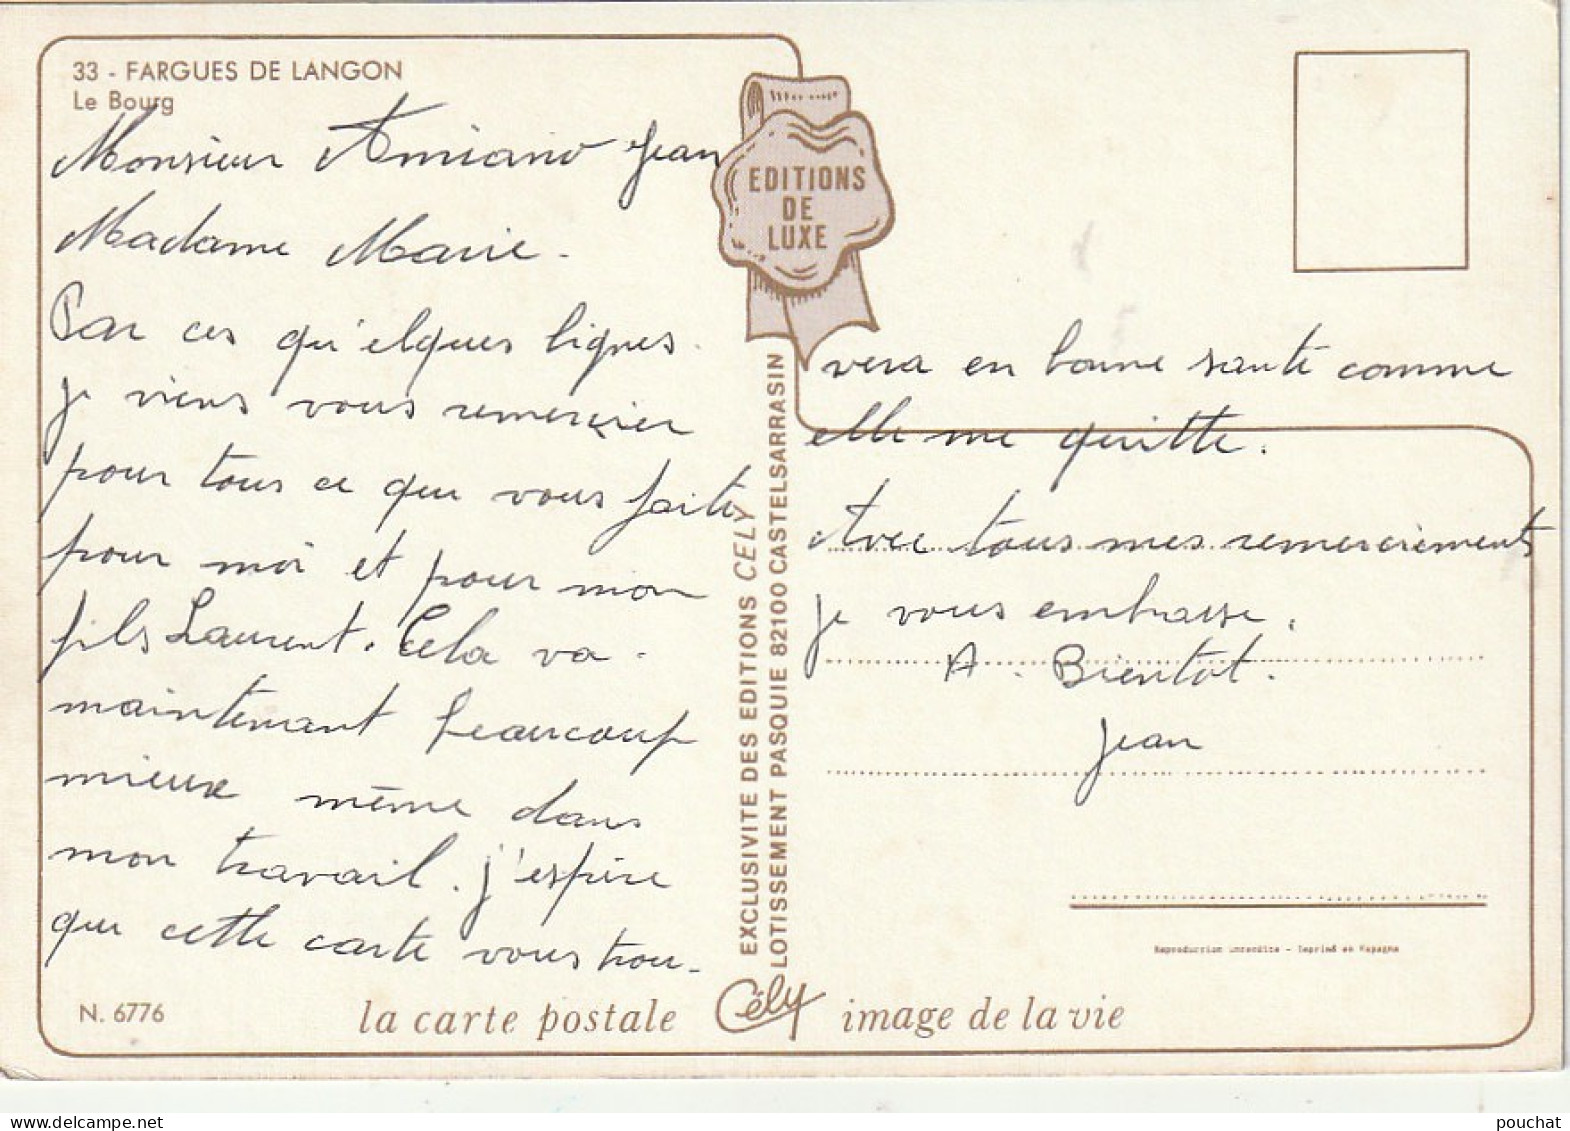 33 - FARGUES DE LANGON
Le Bourg
Monsieur Amiano Jean
Madame Marie.
Par ces qu'elques lignes.
je viens vous remercier
pour tous ce que vous faites
pour moi et pour mon
fils Laurent. Cela va.
maintenant beaucoup
mieux même dans
mon travail. j'espère
que cette carte vous trou-
N. 6776
EDITIONS
DE
LUXE
EXCLUSIVITE DES EDITIONS CELY
LOTISSEMENT PASQUIE 82100 CASTELSARRASIN
vera en bonne santé comme
elle me quitte.
Avec tous mes remerciements
je vous embrasse.
A. Bientot.
Jean
Reproduction interdite - Imprimé en Espagne
la carte postale Cély image de la vie
delcampe.net
pouchat